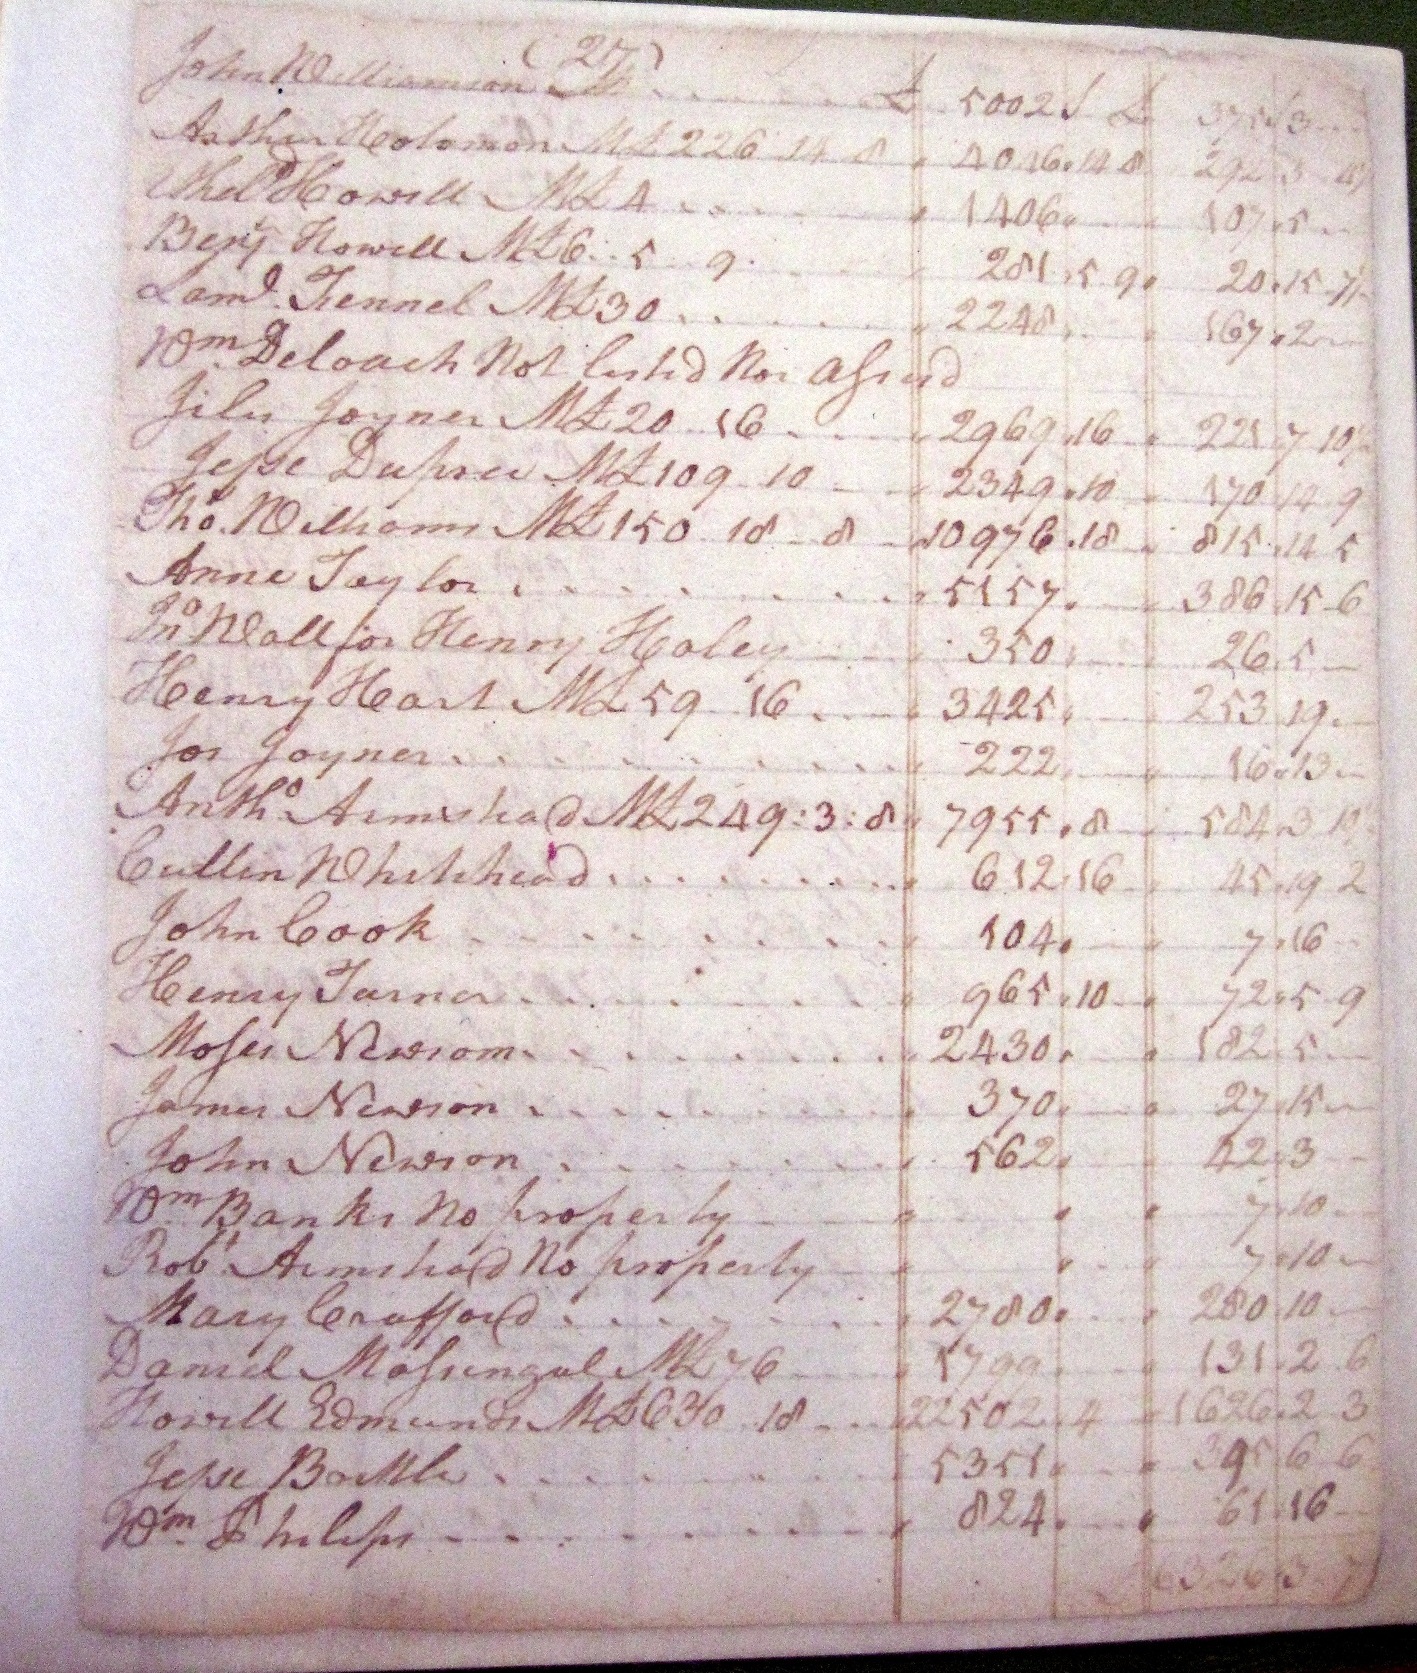 (27)
John Williamson Jr. £ 5002 £ 375 3
Arthur Holoman M£226 14 8 4046 14 8 292 3
Ethel.d Howell M£4 1406 107 5
Benj. Howell M£6 5 9 281 5 9 20 15
Lam.d Fennel M£30 2248 167 2
Wm. Deloach Not listed Nor Assessd
Giles Joyner M£20 16 2969 16 221 7 10
Jesse Dupree M£109 10 2349 10 170 14 9
Tho.s Williams M£150 18 8 10976 18 815 14 5
Anne Taylor 5157 386 15 6
Jno Wall for Henry Haley 350 26 5
Henry Hart M£59 16 3425 253 19
Jos Joyner 222 16 13
Antho. Armshad M£249:3:8 7955 8 584 3
Cullen Whitehead 612 16 45 19 2
John Cook 104 7 16
Henry Turner 965 10 72 5 9
Moses Newsom 2430 182 5
James Newson 370 27 15
John Newson 562 42 3
Wm. Banks No property 7 10
Robt. Armshad No property 7 10
Mary Crafford 2780 280 10
Daniel Massengal M£76 1799 131 2 6
Howell Edmunds M£630 18 22502 4 1626 2 3
Jesse Brittle 5351 395 6 6
Wm. Philips 824 61 16
6326 3 7